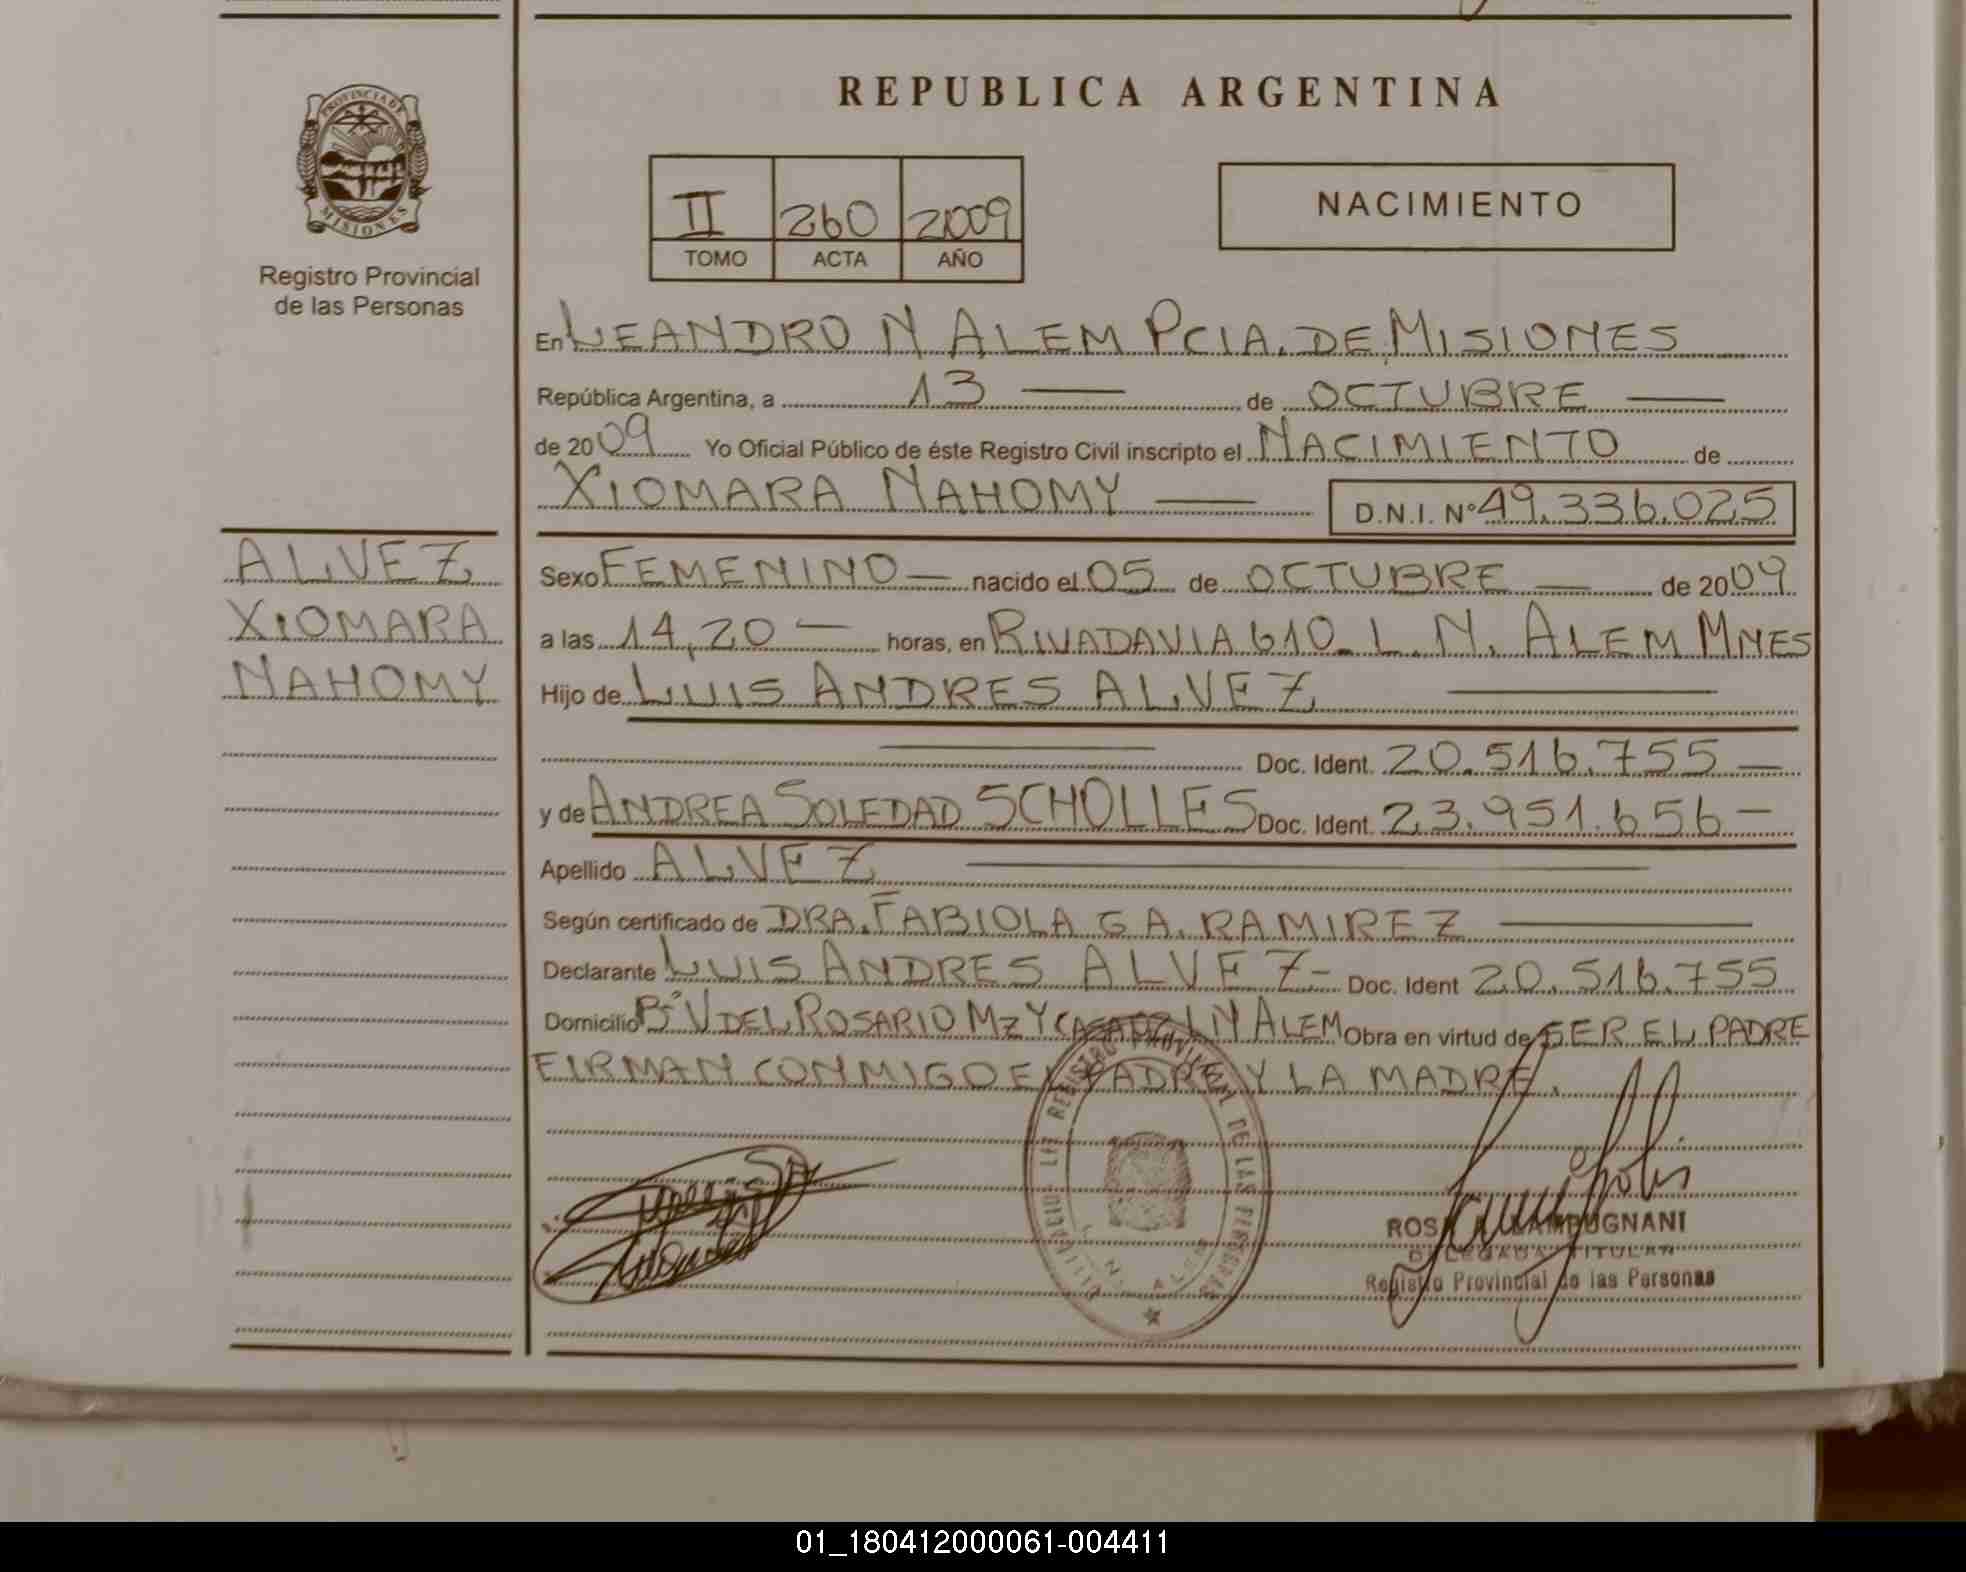 REPUBLICA ARGENTINA
PROVINCIA DE
MISIONES
Registro Provincial
de las Personas
II 260 2009
TOMO ACTA AÑO
NACIMIENTO
En LEANDRO N ALEM PCIA. DE MISIONES
República Argentina, a 13 — de OCTUBRE —
de 2009 Yo Oficial Público de éste Registro Civil inscripto el NACIMIENTO de
XIOMARA NAHOMY — D.N.I. Nº 49.336.025
ALVEZ
XIOMARA
NAHOMY
Sexo FEMENINO — nacido el 05 de OCTUBRE — de 2009
a las 14,20 — horas, en RIVADAVIA 610 L. N. ALEM MNES
Hijo de LUIS ANDRES ALVEZ —
— Doc. Ident. 20.516.755 —
y de ANDREA SOLEDAD SCHOLLES Doc. Ident. 23.951.656 —
Apellido ALVEZ —
Según certificado de DRA. FABIOLA G A. RAMIREZ —
Declarante LUIS ANDRES ALVEZ - Doc. Ident 20.516.755
Domicilio Bº V DEL ROSARIO MZ Y CASA L N ALEM Obra en virtud de SER EL PADRE
FIRMAN CONMIGO EL PADRE Y LA MADRE.
REGISTRO PROVINCIAL DE LAS PERSONAS
L. N. ALEM
ROSA A. LAMPUGNANI
DELEGADA TITULAR
Registro Provincial de las Personas
01_180412000061-004411